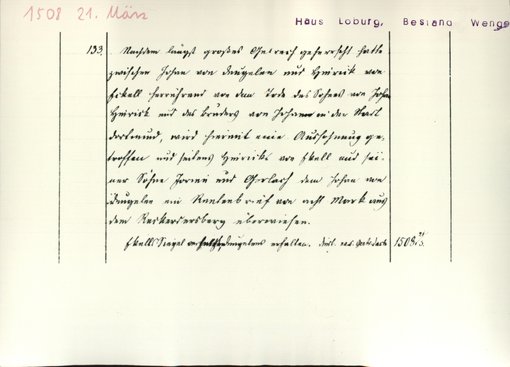 1508 21. März
Haus Loburg, Bestand Wenge
133. Nachdem längst großes Gelreich geherrscht hatte
zwischen Johan von und Hinrick von
Ekell herrührend von dem Tode des Sohnes von Johan
Hinrick und des Bruders von Johann in der Stadt
Dortmund, wird hiermit eine Aussöhnung ge-
troffen und seitens Hinricks von Ekell und sei-
ner Söhne und Gerlach dem Johan von
ein Rentenbrief von acht Mark aus
dem überwiesen.
Ekells Siegel erhalten. 1508 21/3.